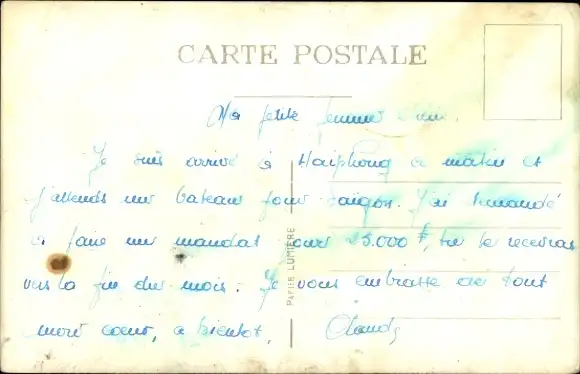 CARTE POSTALE
Ma petite femme
Je suis arrivé à Haiphong ce matin et
j'attends un bateau pour Saigon. J'ai demandé
à faire un mandat pour 25.000 F, tu le recevras
vers la fin du mois. Je vous embrasse de tout
mon coeur, a bientot,
Claude
PAPIER LUMIÈRE